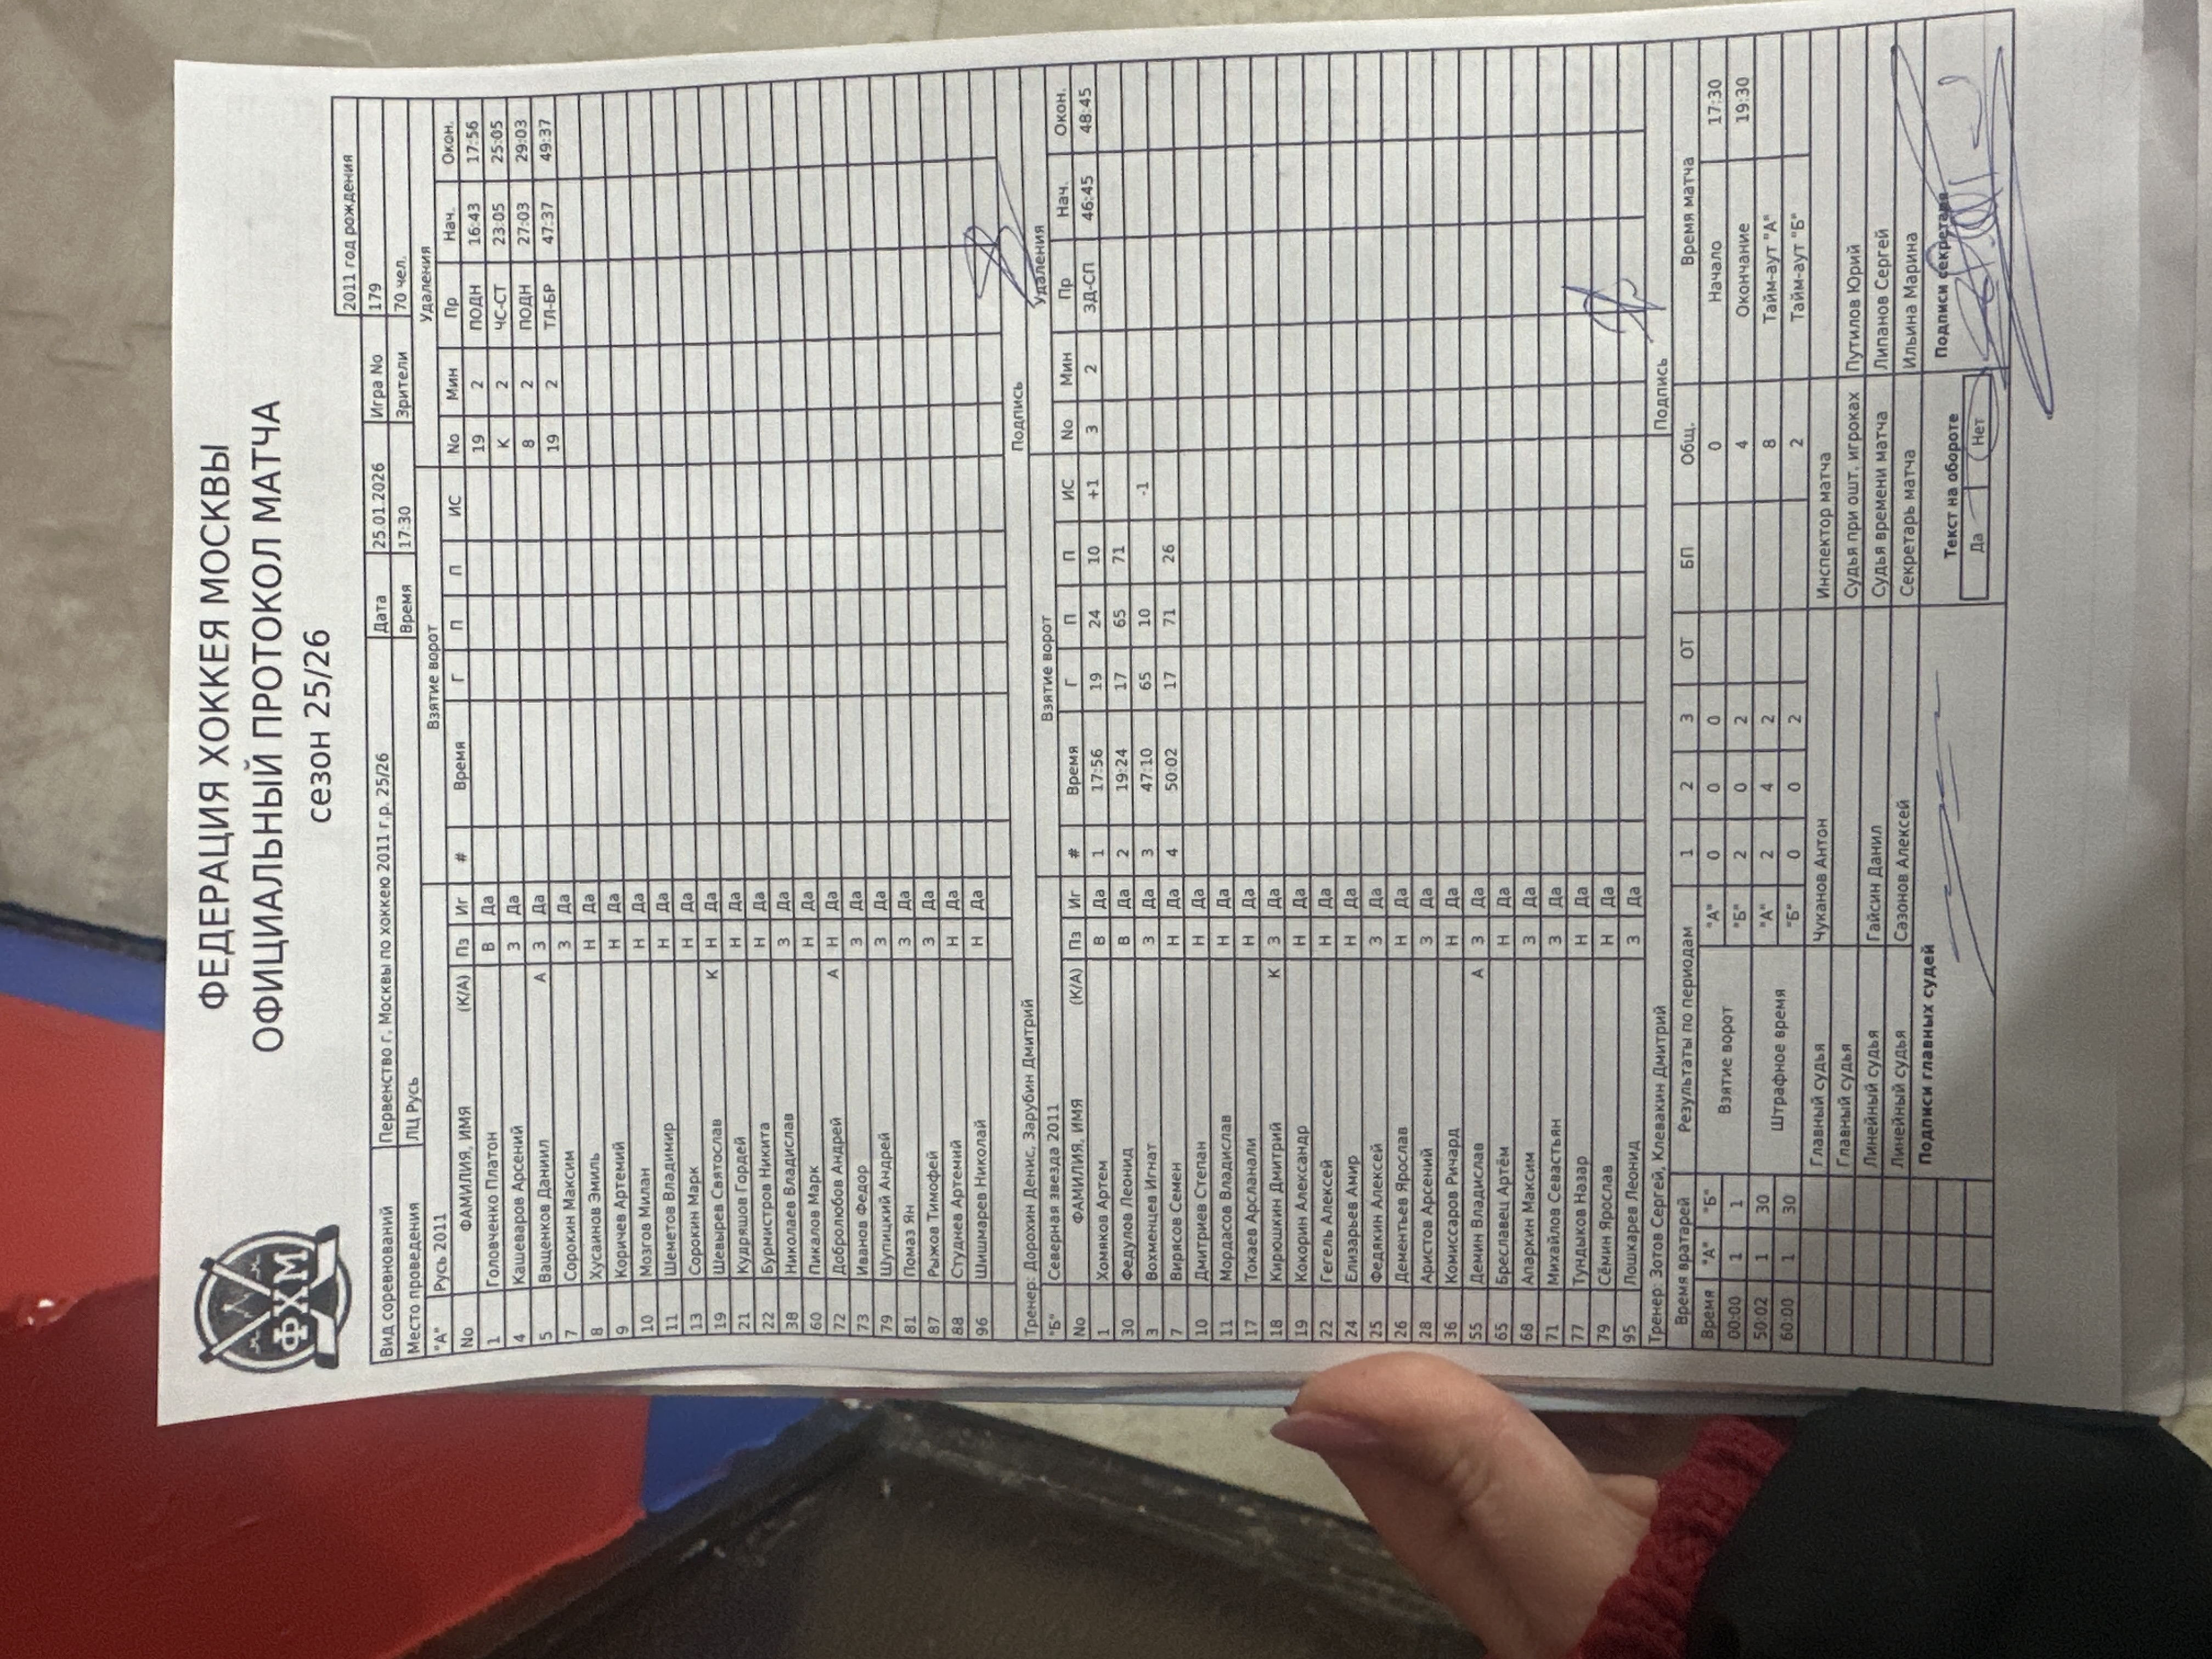 ФХМ
ФЕДЕРАЦИЯ ХОККЕЯ МОСКВЫ
ОФИЦИАЛЬНЫЙ ПРОТОКОЛ МАТЧА
сезон 25/26
2011 год рождения
Вид соревнований Первенство г. Москвы по хоккею 2011 г.р. 25/26 Дата 25.01.2026 Игра No 179
Место проведения ЛЦ Русь Время 17:30 Зрители 70 чел.
"А" Русь 2011 Взятие ворот Удаления
No ФАМИЛИЯ, ИМЯ (К/А) Пз Иг # Время Г П П ИС No Мин Пр Нач. Окон.
1 Головченко Платон В Да 19 2 ПОДН 16:43 17:56
4 Кашеваров Арсений З Да К 2 ЧС-СТ 23:05 25:05
5 Ващенков Даниил А З Да 8 2 ПОДН 27:03 29:03
7 Сорокин Максим З Да 19 2 ТЛ-БР 47:37 49:37
8 Хусаинов Эмиль Н Да
9 Коричев Артемий Н Да
10 Мозгов Милан Н Да
11 Шеметов Владимир Н Да
13 Сорокин Марк Н Да
19 Шевырев Святослав К Н Да
21 Кудряшов Гордей Н Да
22 Бурмистров Никита Н Да
38 Николаев Владислав З Да
60 Пикалов Марк Н Да
72 Добролюбов Андрей А Н Да
73 Иванов Федор З Да
79 Шупицкий Андрей З Да
81 Помаз Ян З Да
87 Рыжов Тимофей З Да
88 Студнев Артемий Н Да
96 Шишмарев Николай Н Да
Тренер: Дорохин Денис, Зарубин Дмитрий Подпись
"Б" Северная звезда 2011 Взятие ворот Удаления
No ФАМИЛИЯ, ИМЯ (К/А) Пз Иг # Время Г П П ИС No Мин Пр Нач. Окон.
1 Хомяков Артем В Да 1 17:56 19 24 10 +1 3 2 ЗД-СП 46:45 48:45
30 Федулов Леонид В Да 2 19:24 17 65 71
3 Вохменцев Игнат З Да 3 47:10 65 10 -1
7 Вирясов Семен Н Да 4 50:02 17 71 26
10 Дмитриев Степан Н Да
11 Мордасов Владислав Н Да
17 Токаев Арсланали Н Да
18 Кирюшкин Дмитрий К З Да
19 Кокорин Александр Н Да
22 Гегель Алексей Н Да
24 Елизарьев Амир Н Да
25 Федякин Алексей З Да
26 Дементьев Ярослав Н Да
28 Аристов Арсений З Да
36 Комиссаров Ричард Н Да
55 Демин Владислав А З Да
65 Бреславец Артём Н Да
68 Апаркин Максим З Да
71 Михайлов Севастьян З Да
77 Тундыков Назар Н Да
79 Сёмин Ярослав Н Да
95 Лошкарев Леонид З Да
Тренер: Зотов Сергей, Клевакин Дмитрий Подпись
Время вратарей Результаты по периодам 1 2 3 ОТ БП Общ. Время матча
Время "А" "Б" Взятие ворот "А" 0 0 0 0 Начало 17:30
00:00 1 1 "Б" 2 0 2 4 Окончание 19:30
50:02 1 30 Штрафное время "А" 2 4 2 8 Тайм-аут "А"
60:00 1 30 "Б" 0 0 2 2 Тайм-аут "Б"
Главный судья Чуканов Антон Инспектор матча
Главный судья Судья при ошт. игроках Путилов Юрий
Линейный судья Гайсин Данил Судья времени матча Липанов Сергей
Линейный судья Сазонов Алексей Секретарь матча Ильина Марина
Подписи главных судей Текст на обороте Подписи секретаря
Да Нет